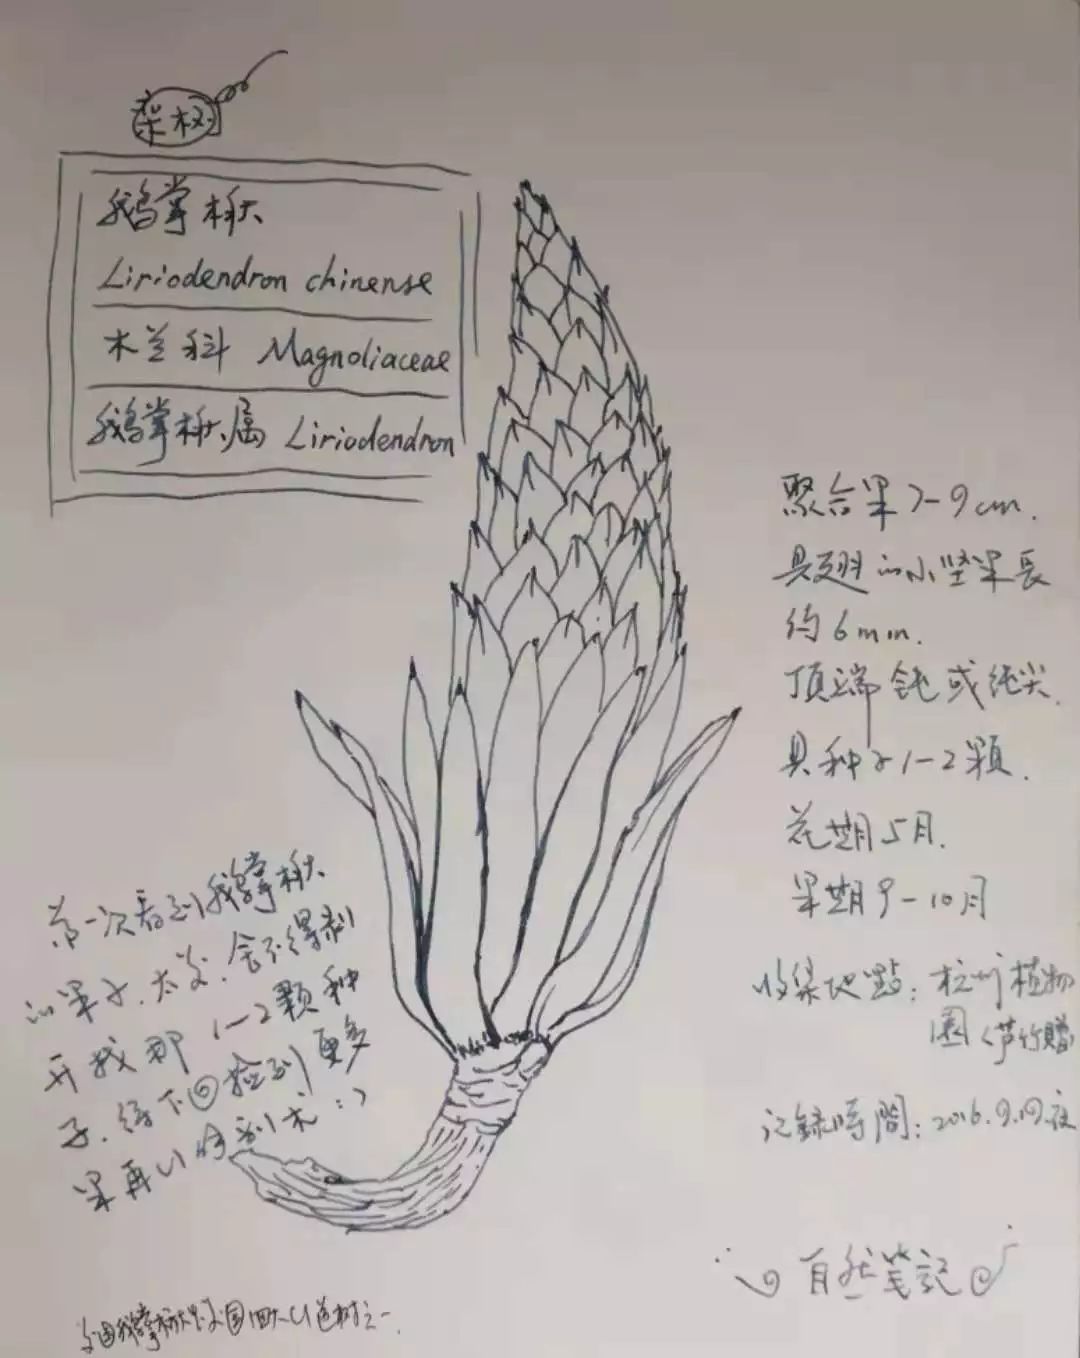 鹅掌楸
Liriodendron chinense
木兰科 Magnoliaceae
鹅掌楸属 Liriodendron
聚合果7-9cm.
具翅的小坚果长
约6mm.
顶端钝或钝尖.
具种子1-2颗.
花期5月.
果期9-10月
收集地點：杭州植物
園（芦竹贈
记録時間：2016.9.19.夜
第一次看到鹅掌楸
的果子.太美.舍不得剥
开找那1-2颗种
子.待下回捡到更多
果再小解剖术：）
自然笔記